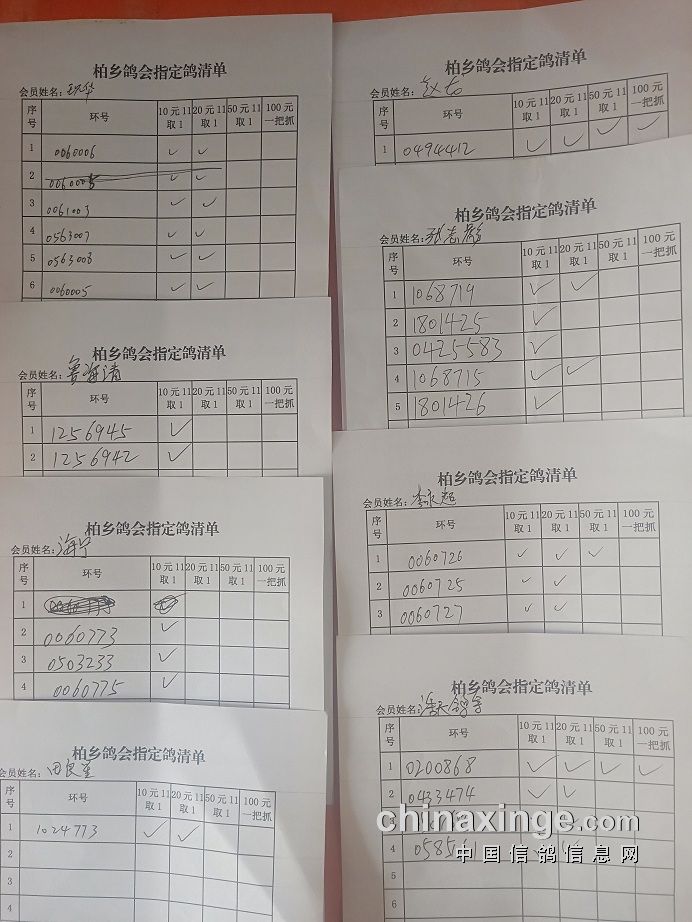 柏乡鸽会指定鸽清单
会员姓名:
序号 环号 10元11取1 20元11取1 50元11取1 100元一把抓
1 0060006 ✓ ✓
2 0060005 ✓ ✓
3 0061003 ✓ ✓
4 0563007 ✓ ✓
5 0563008 ✓ ✓
6 0060005 ✓ ✓
柏乡鸽会指定鸽清单
会员姓名:鲁海清
序号 环号 10元11取1 20元11取1 50元11取1 100元一把抓
1 1256945 ✓
2 1256942 ✓
柏乡鸽会指定鸽清单
会员姓名:海宁
序号 环号 10元11取1 20元11取1 50元11取1 100元一把抓
1
2 0060773 ✓
3 0503233 ✓
4 0060775 ✓
柏乡鸽会指定鸽清单
会员姓名:田良
序号 环号 10元11取1 20元11取1 50元11取1 100元一把抓
1 1024773 ✓ ✓
2
3
4
柏乡鸽会指定鸽清单
会员姓名:
序号 环号 10元11取1 20元11取1 50元11取1 100元一把抓
1 0494412 ✓ ✓ ✓ ✓
柏乡鸽会指定鸽清单
会员姓名:张志
序号 环号 10元11取1 20元11取1 50元11取1 100元一把抓
1 1068719 ✓ ✓
2 1801425 ✓
3 0425583 ✓
4 1068715 ✓ ✓
5 1801426 ✓
柏乡鸽会指定鸽清单
会员姓名:李永超
序号 环号 10元11取1 20元11取1 50元11取1 100元一把抓
1 0060726 ✓ ✓ ✓
2 0060725 ✓ ✓
3 0060727 ✓ ✓
柏乡鸽会指定鸽清单
会员姓名:
序号 环号 10元11取1 20元11取1 50元11取1 100元一把抓
1 0200868 ✓ ✓ ✓ ✓
2 0433474 ✓ ✓
chinaxinge.com
4
中国信鸽信息网
5
6